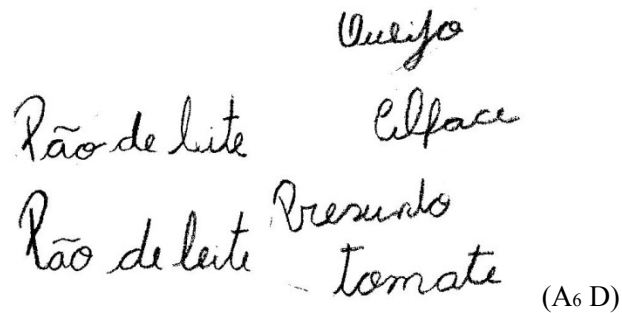 Queijo
Pão de leite
Cilface
Pão de leite
Presunto
tomate
(A6 D)